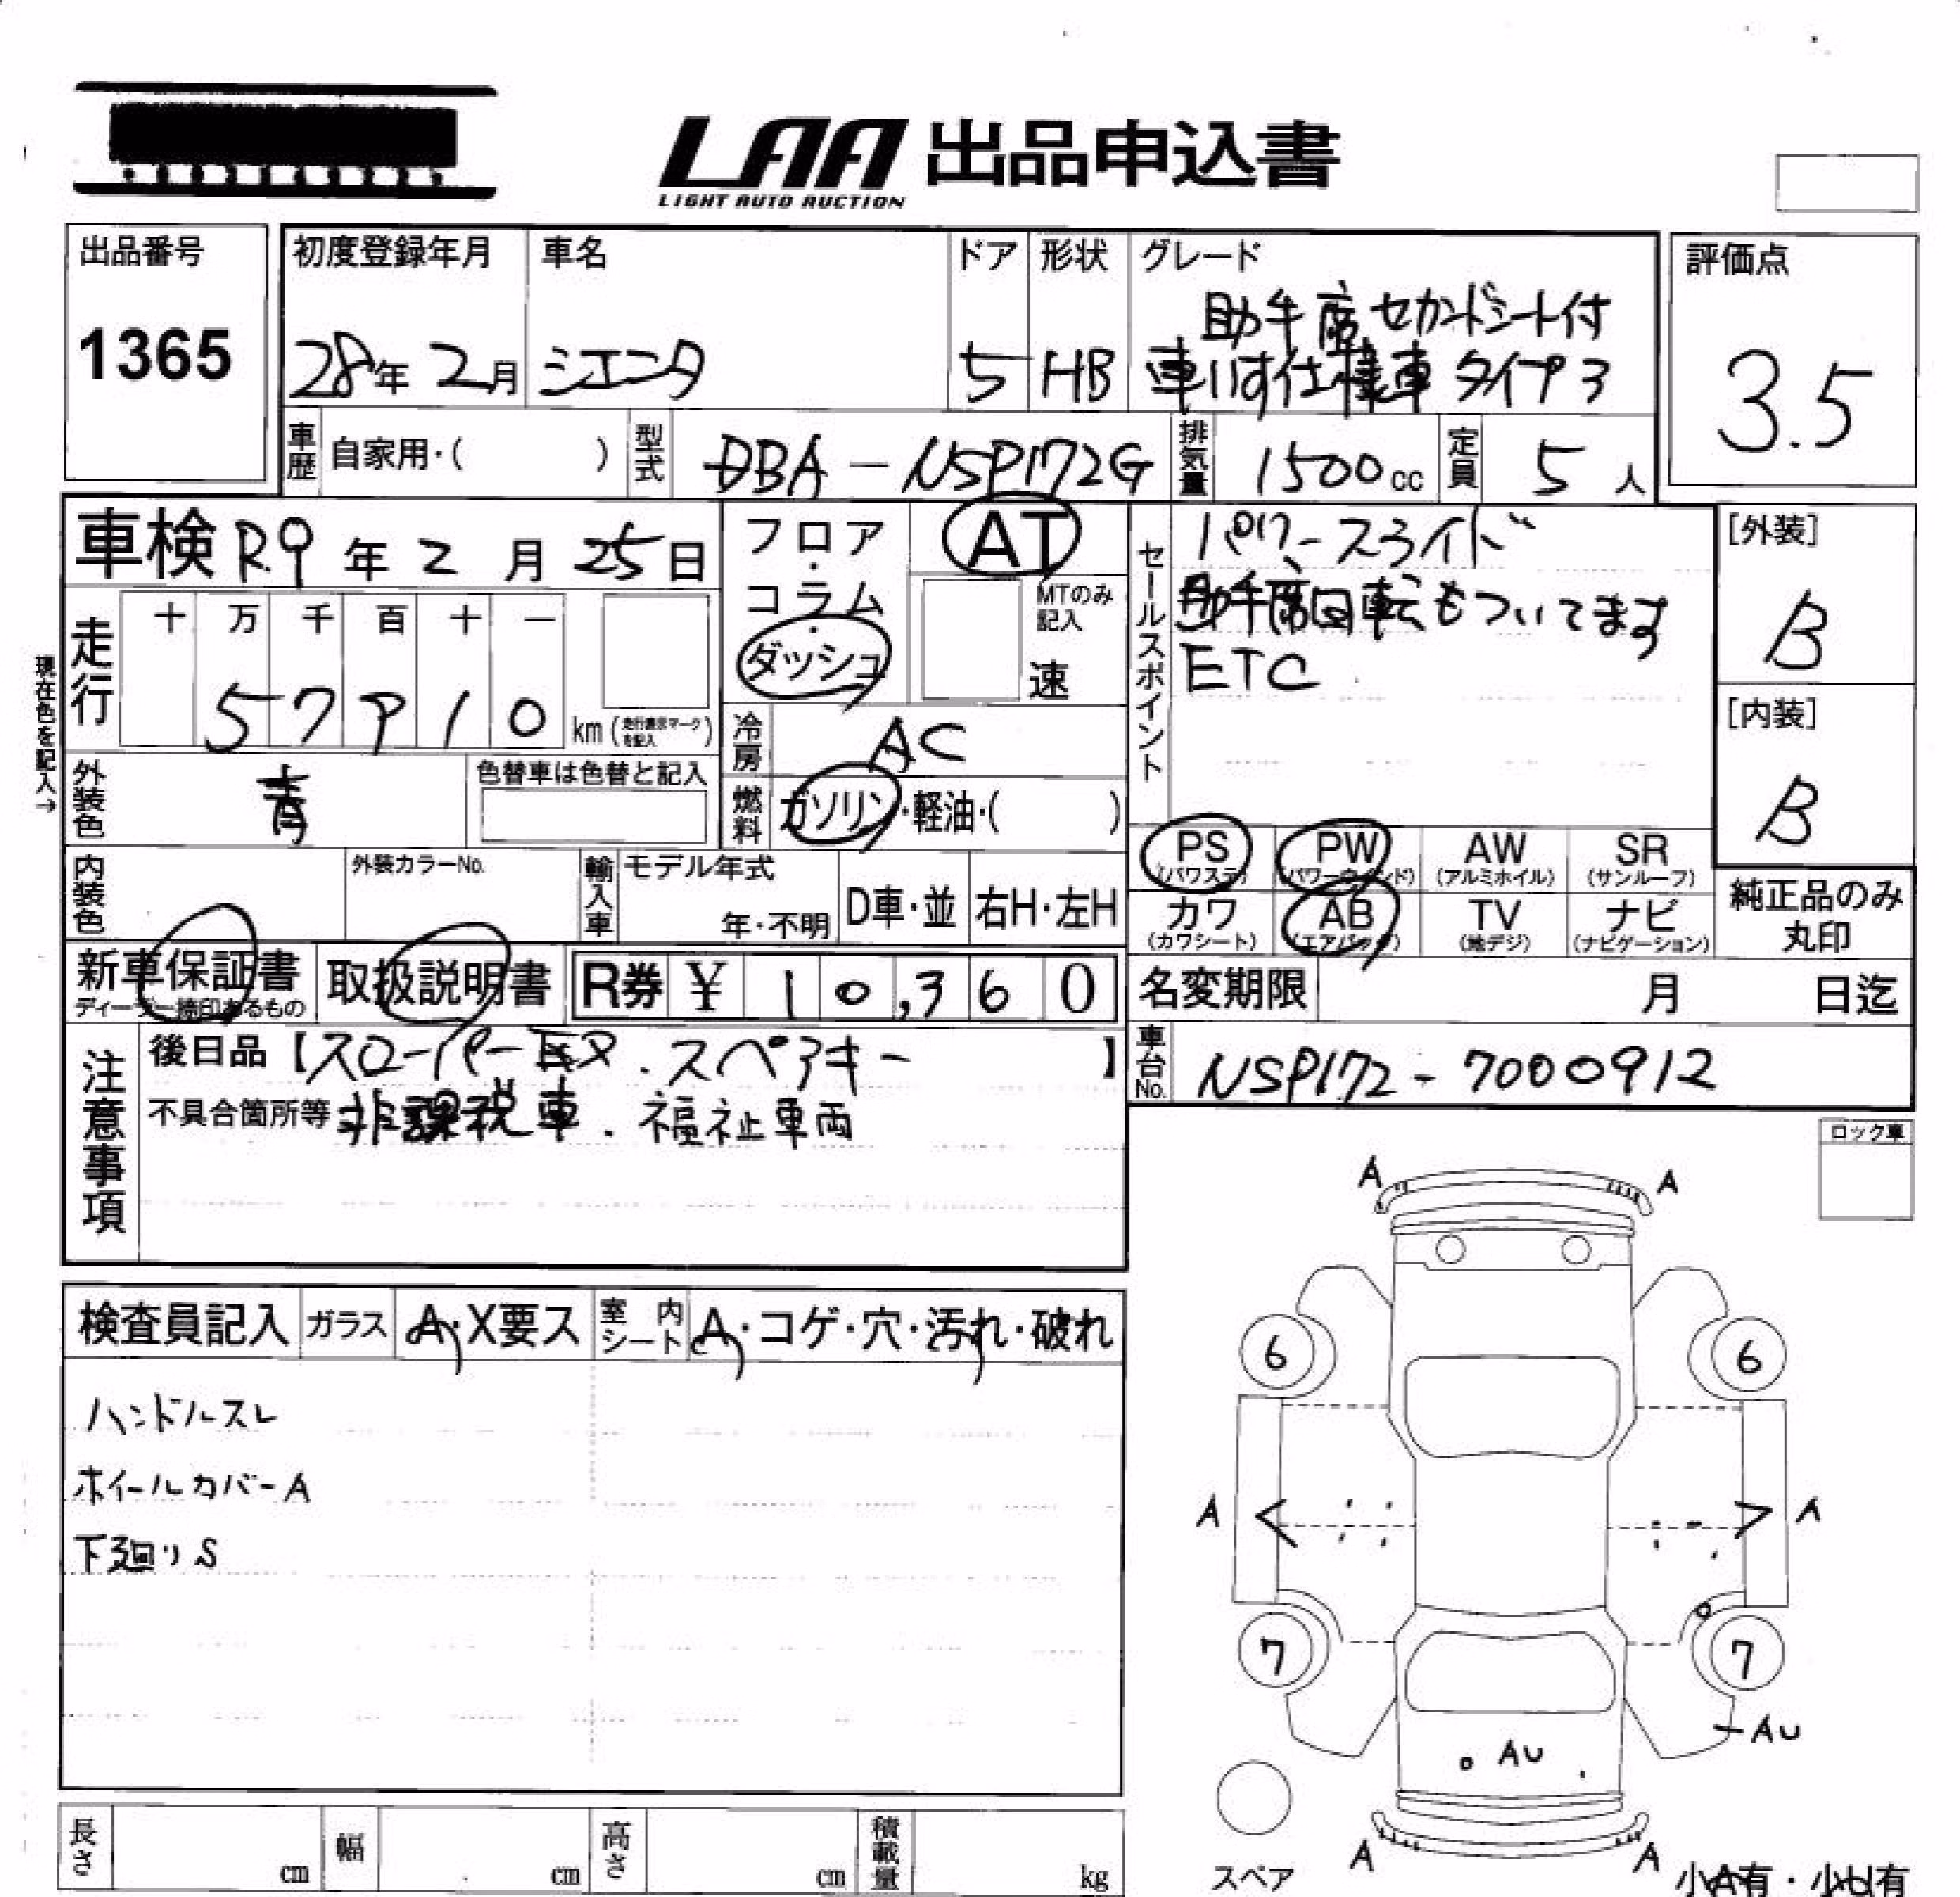 LAA 出品申込書
LIGHT AUTO AUCTION
出品番号
1365
初度登録年月
28年 2月
車名
シエンタ
ドア
5
形状
HB
グレード
助手席セカンドシート付
車いす仕様車 タイプ3
評価点
3.5
車歴 自家用・( )
型式 DBA-NSP172G
排気量 1500cc
定員 5人
車検 R.9年 2月 25日
走行
十 万 千 百 十 一
57910 km (走行表示マークを記入)
現在色を記入→
外装色 青
色替車は色替と記入
内装色
外装カラーNo.
フロア・コラム・ダッシュ
AT
MTのみ記入
速
冷房 AC
燃料 ガソリン・軽油・( )
輸入車 モデル年式
年・不明
D車・並
右H・左H
セールスポイント
パワースライド
助手席回転もついてます
ETC
[外装]
B
[内装]
B
PS (パワステ)
PW (パワーウインド)
AW (アルミホイル)
SR (サンルーフ)
カワ (カワシート)
AB (エアバッグ)
TV (地デジ)
ナビ (ナビゲーション)
純正品のみ丸印
新車保証書
ディーラー捺印あるもの
取扱説明書
R券 ¥ 10,360
名変期限 月 日迄
車台No. NSP172-7000912
注意事項
後日品【スローパー 、スペアキー 】
不具合箇所等 非課税車、福祉車両
ロック車
検査員記入
ガラス A・X要ス
室内シート A・コゲ・穴・汚れ・破れ
ハンドルスレ
ホイールカバーA
下廻りS
A A
6 6
A A
7 7
AU
AU
A A
スペア
小A有・小U有
長さ cm
幅 cm
高さ cm
積載量 kg